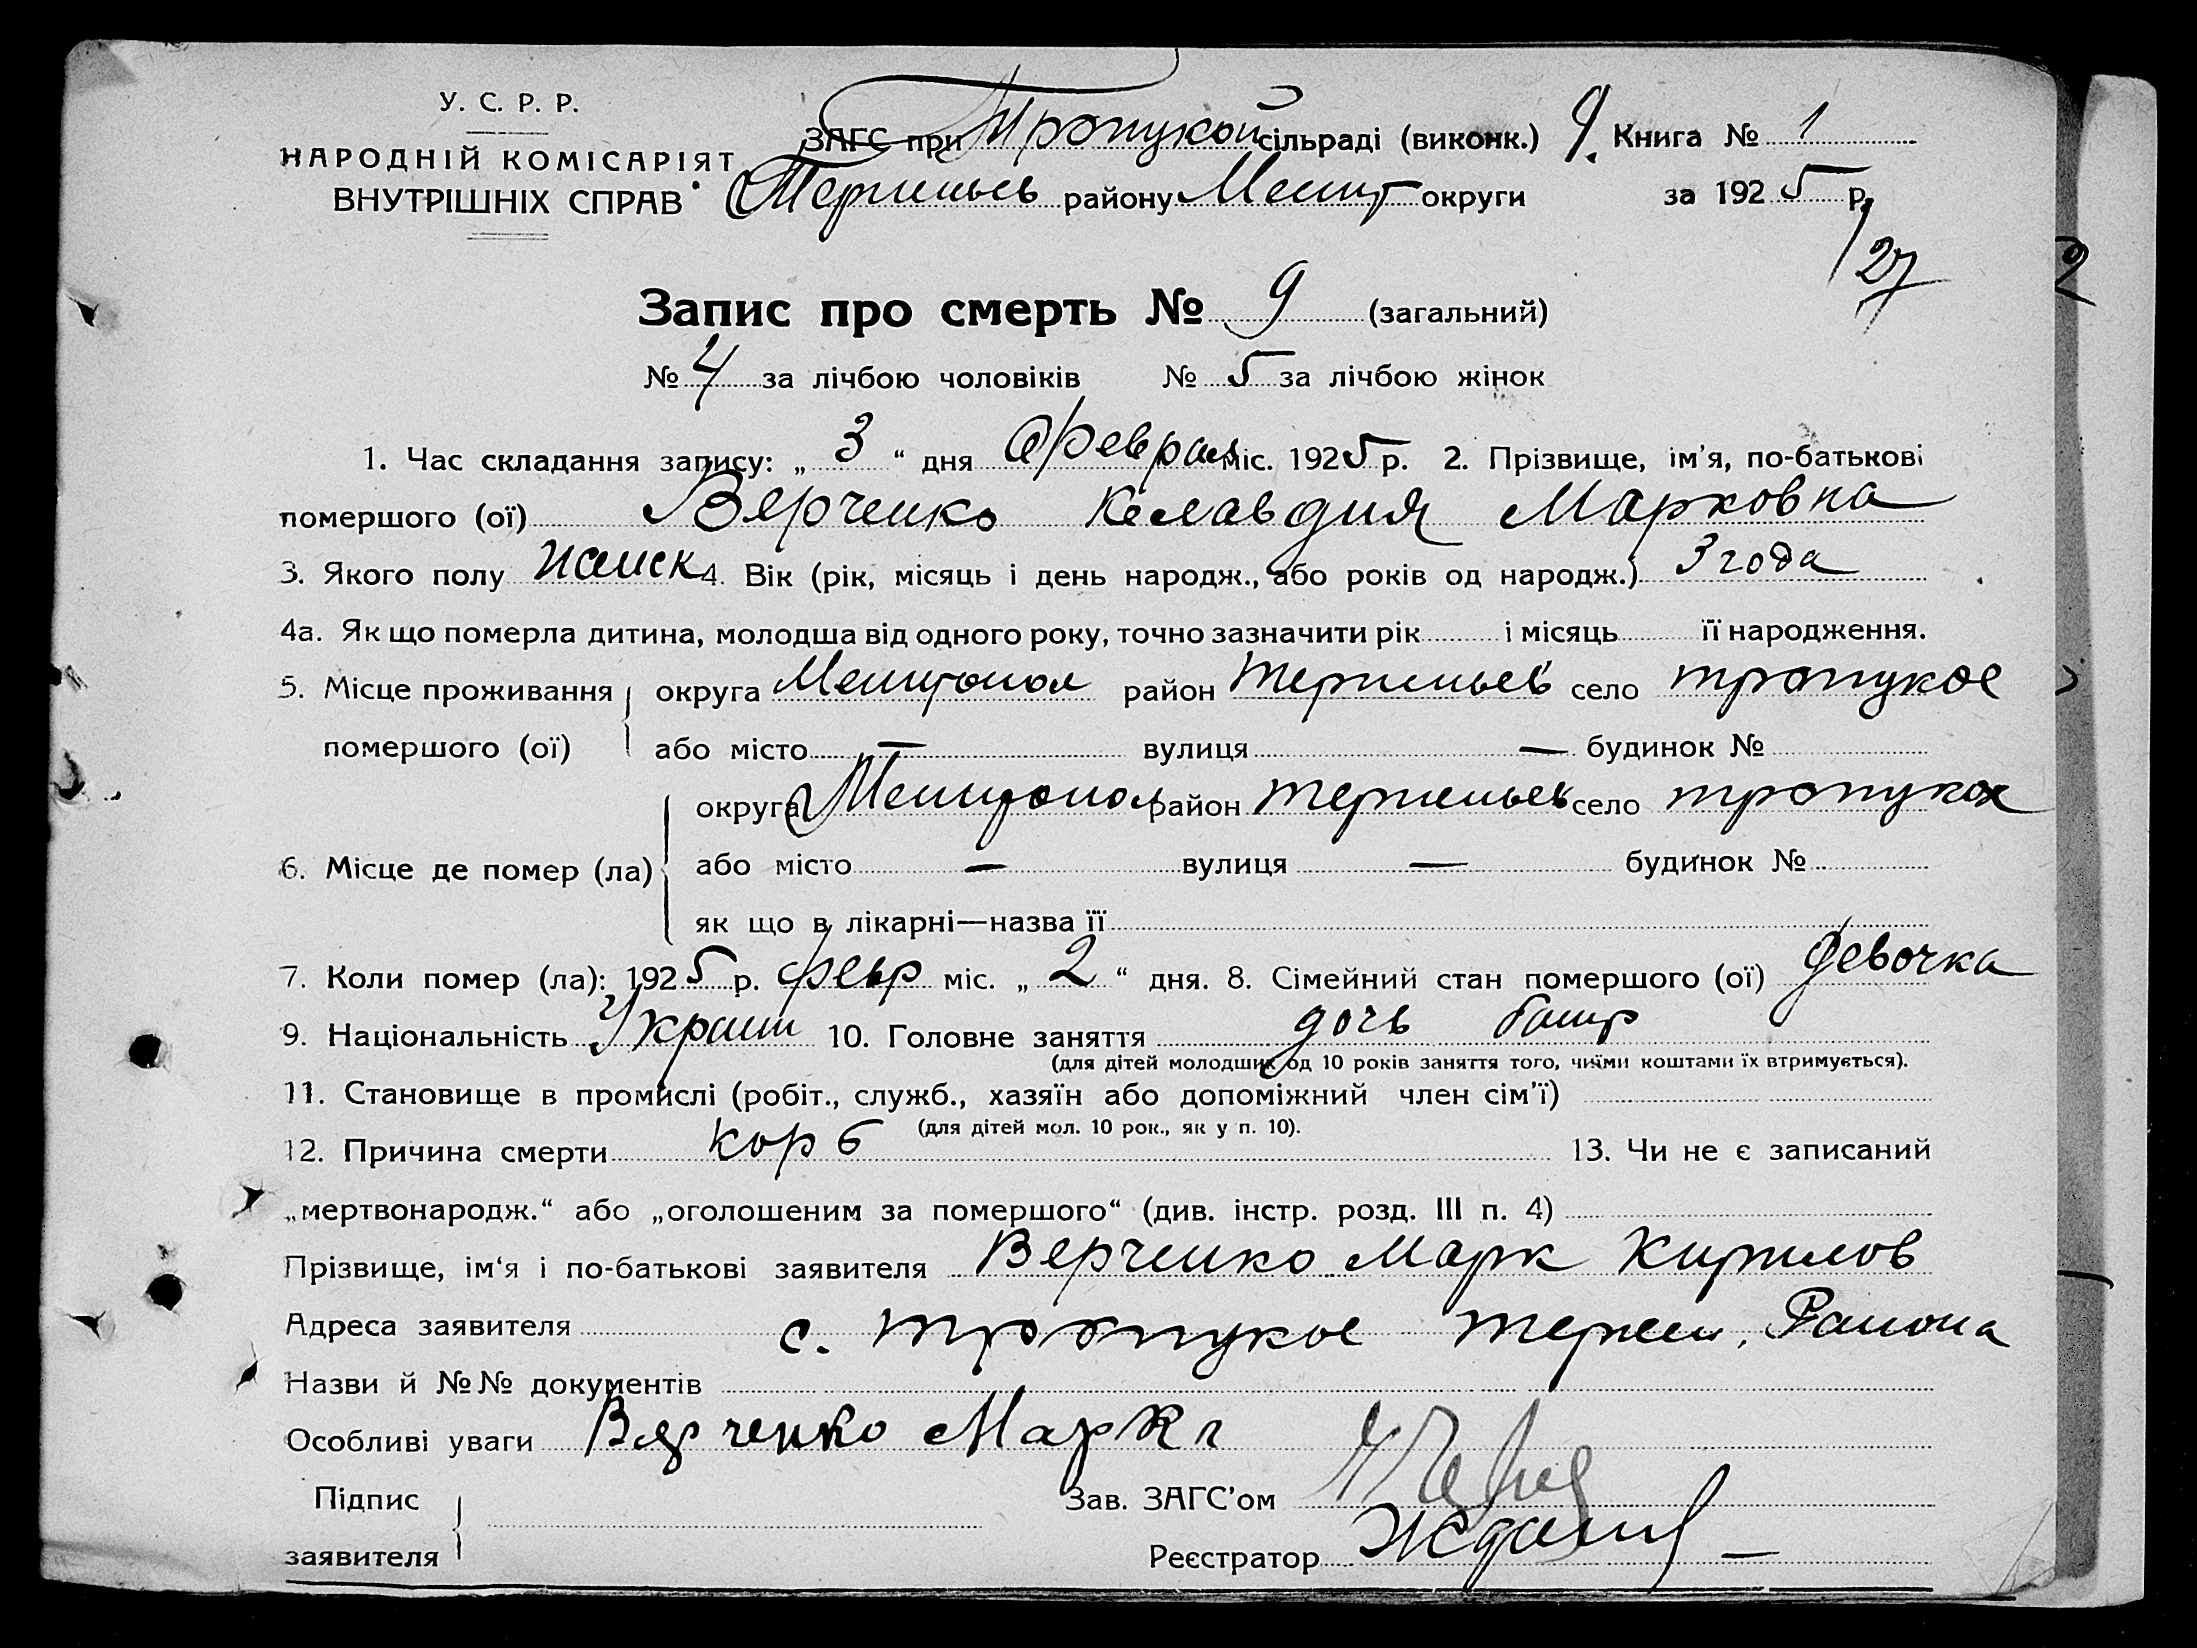 У. С. Р. Р.
НАРОДНІЙ КОМІСАРІЯТ
ВНУТРІШНІХ СПРАВ
ЗАГС при Тропукой сільраді (виконк.) 9. Книга № 1
Терпеньев району Мелит округи за 1925 р.
27
Запис про смерть № 9 (загальний)
№ 4 за лічбою чоловіків № 5 за лічбою жінок
1. Час складання запису: „ 3 “ дня Февраля міс. 1925 р. 2. Прізвище, ім'я, по-батькові
помершого (ої) Вярченко Клавдия Марковна
3. Якого полу женск 4. Вік (рік, місяць і день народж., або років од народж.) 3 года
4а. Як що померла дитина, молодша від одного року, точно зазначити рік і місяць її народження.
5. Місце проживання округа Мелитопол район Терпеньев село тропукое
помершого (ої) або місто — вулиця — будинок №
округа Мелитопол район терпеньев село тропукое
6. Місце де помер (ла) або місто — вулиця — будинок №
як що в лікарні—назва її
7. Коли помер (ла): 1925 р. февр міс. „ 2 “ дня. 8. Сімейний стан помершого (ої) девочка
9. Національність Украин 10. Головне заняття дочь батр
(для дітей молодших од 10 років заняття того, чиїми коштами їх втримується).
11. Становище в промислі (робіт., служб., хазяїн або допоміжний член сім'ї)
(для дітей мол. 10 рок., як у п. 10).
12. Причина смерти корь 13. Чи не є записаний
„мертвонародж.“ або „оголошеним за помершого“ (див. інстр. розд. III п. 4)
Прізвище, ім'я і по-батькові заявителя Верченко Марк Кирилов
Адреса заявителя с. тропукое терпен. Района
Назви й №№ документів
Особливі уваги Вярченко Марк
Підпис
заявителя
Зав. ЗАГС'ом
Реєстратор